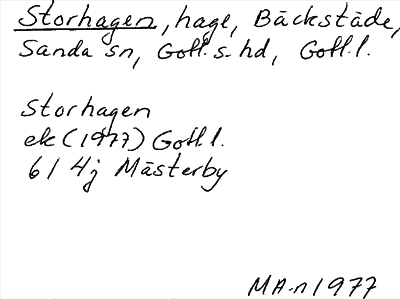 Storhagen, hage, Bäckstäde,
Sanda sn, Gotl. s. hd, Gotl. l.
Storhagen
ek (1977) Gotl. l.
6 I 4j Mästerby
MA-n 1977